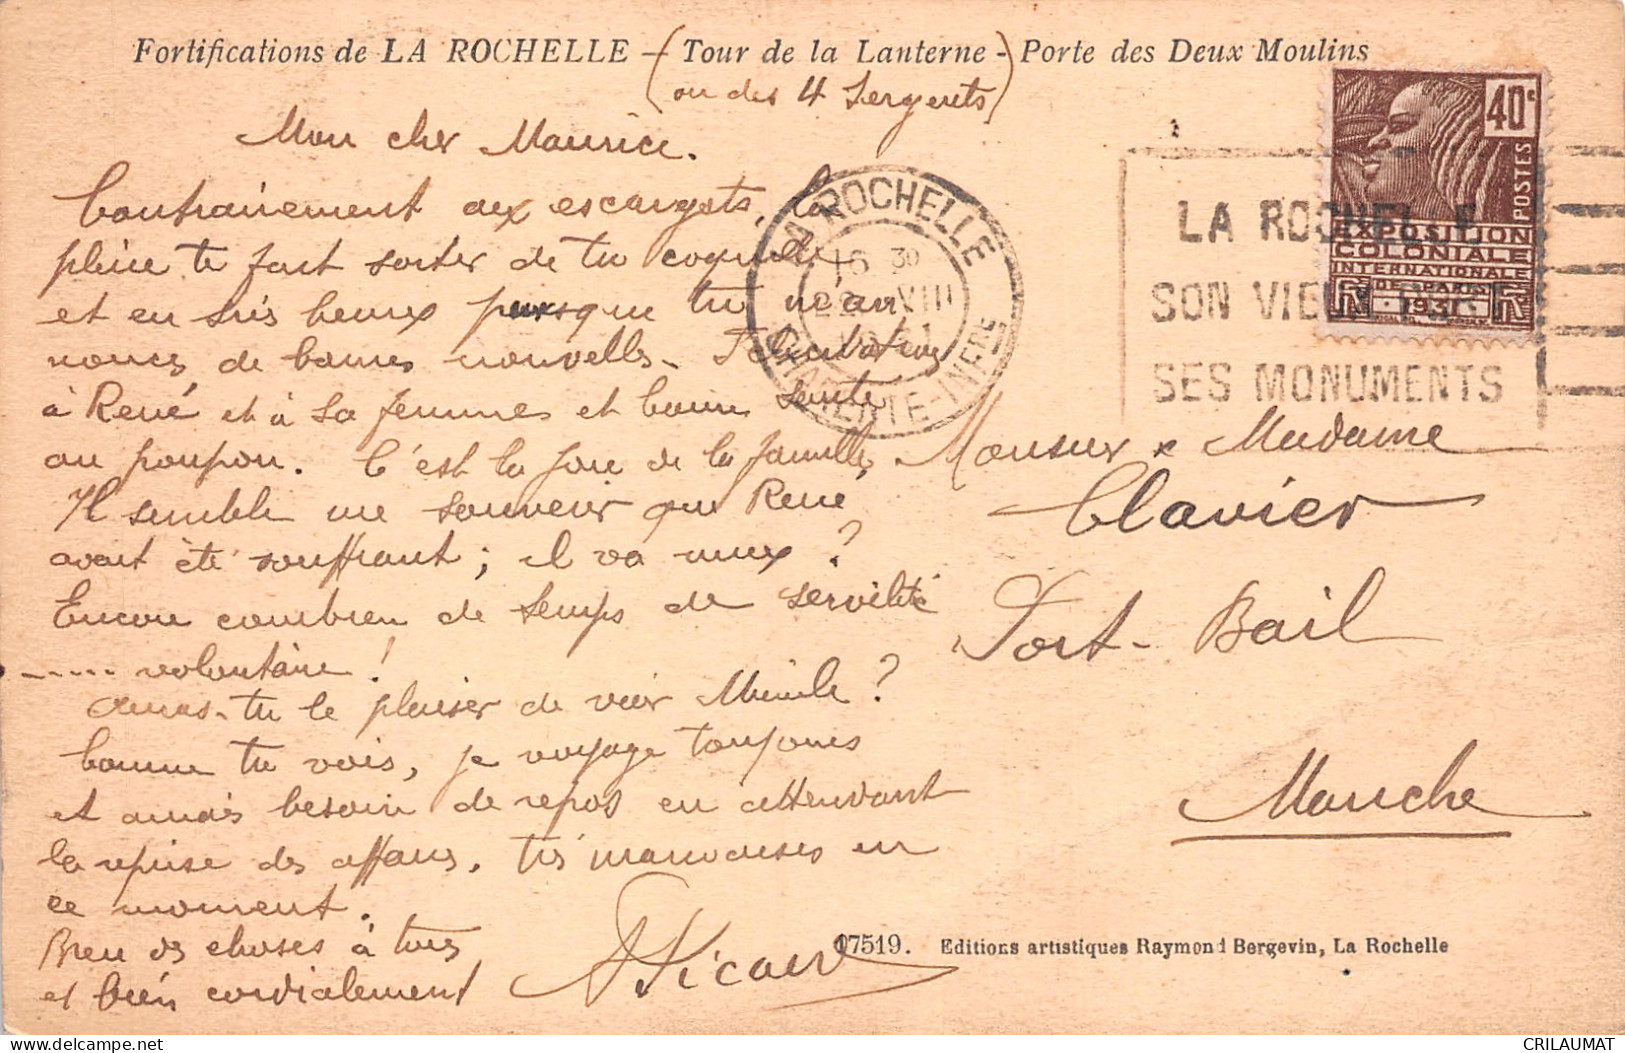 Fortifications de LA ROCHELLE — (Tour de la Lanterne -) Porte des Deux Moulins
(ou des 4 Sergents)
Mon cher Maurice.
Contrairement aux escargots, la
pluie te fait sortir de ta coquille
et en suis heureux puisque tu m'an
nonces de bonnes nouvelles. Félicitations
à René et à sa femme et bonne santé
au poupon. C'est la joie de la famille,
Il semble me souvenir que René
avait été souffrant ; il va mieux ?
Encore combien de temps de servilité
----- volontaire !
Auras-tu le plaisir de voir Mimile ?
Comme tu vois, je voyage toujours
et aurais besoin de repos en attendant
la reprise des affaires, très mauvaises en
ce moment.
Bien des choses à tous
et bien cordialement
LA ROCHELLE
16 30
VIII
CHARENTE-INFRE
LA ROCHELLE
SON VIEUX PORT
SES MONUMENTS
40c
POSTES
EXPOSITION
COLONIALE
INTERNATIONALE
DE PARIS
RF 1931 RF
Monsieur & Madame
Clavier
Port-Bail
Manche
17519. Editions artistiques Raymond Bergevin, La Rochelle
CRILAUMAT